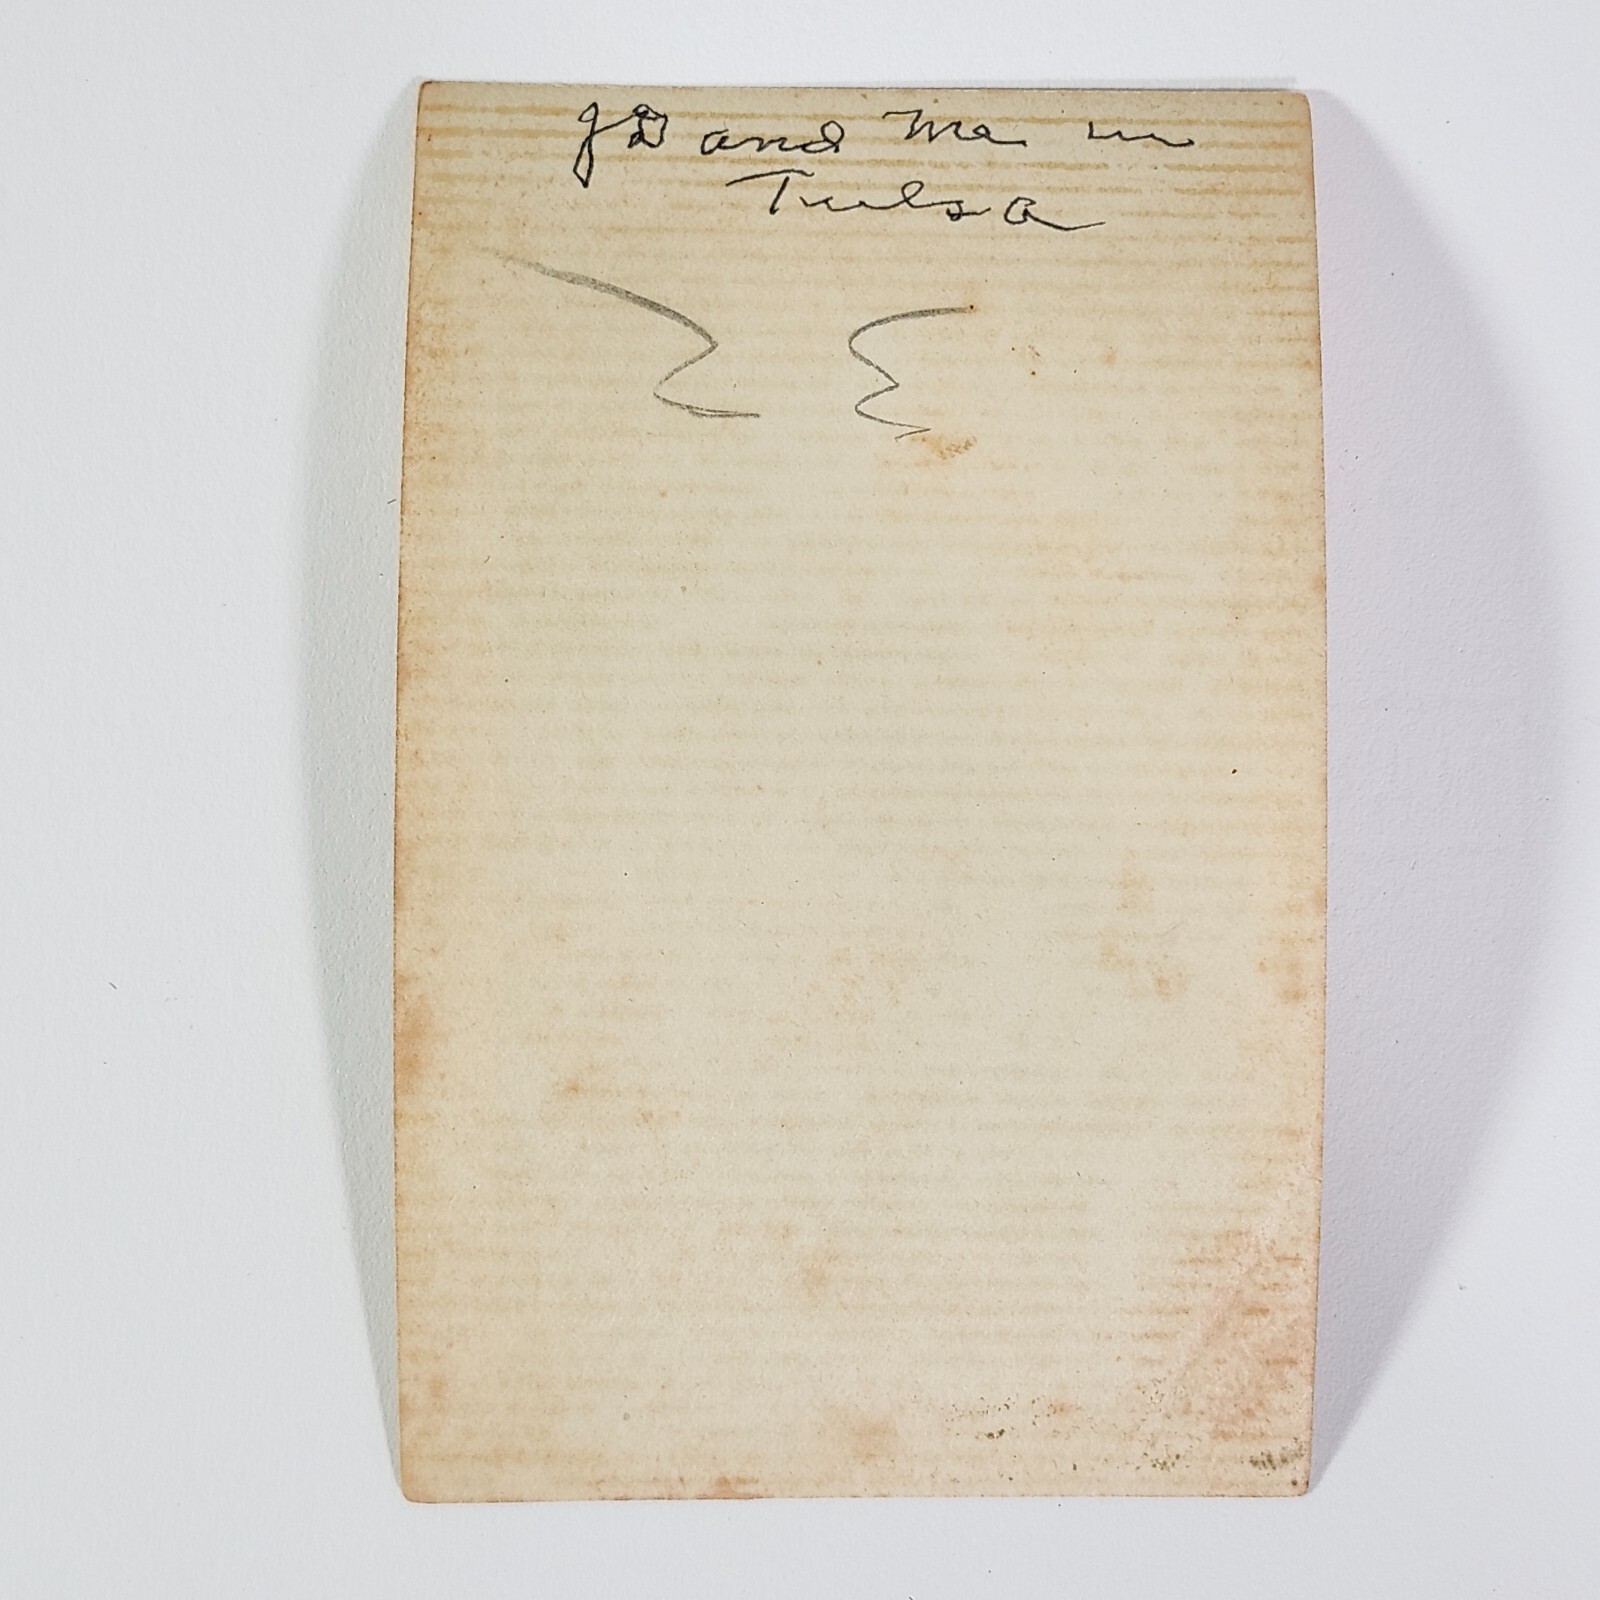 JD and Me in
Tulsa